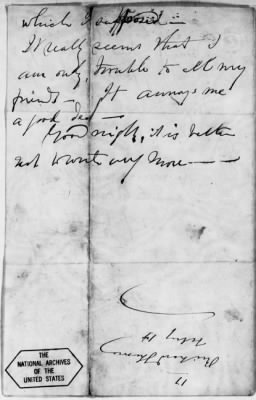 which I supposed —
It really seems that I
am only trouble to all my
friends — It annoys me
a good deal —
Good night, it is better
not to write any more — —
THE
NATIONAL ARCHIVES
OF THE
UNITED STATES
17
Richard
14